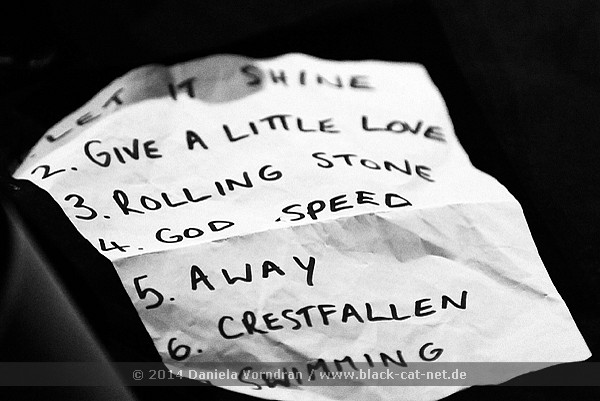 1. LET IT SHINE
2. GIVE A LITTLE LOVE
3. ROLLING STONE
4. GOD SPEED
5. AWAY
6. CRESTFALLEN
SWIMMING
© 2014 Daniela Vorndran / www.black-cat-net.de